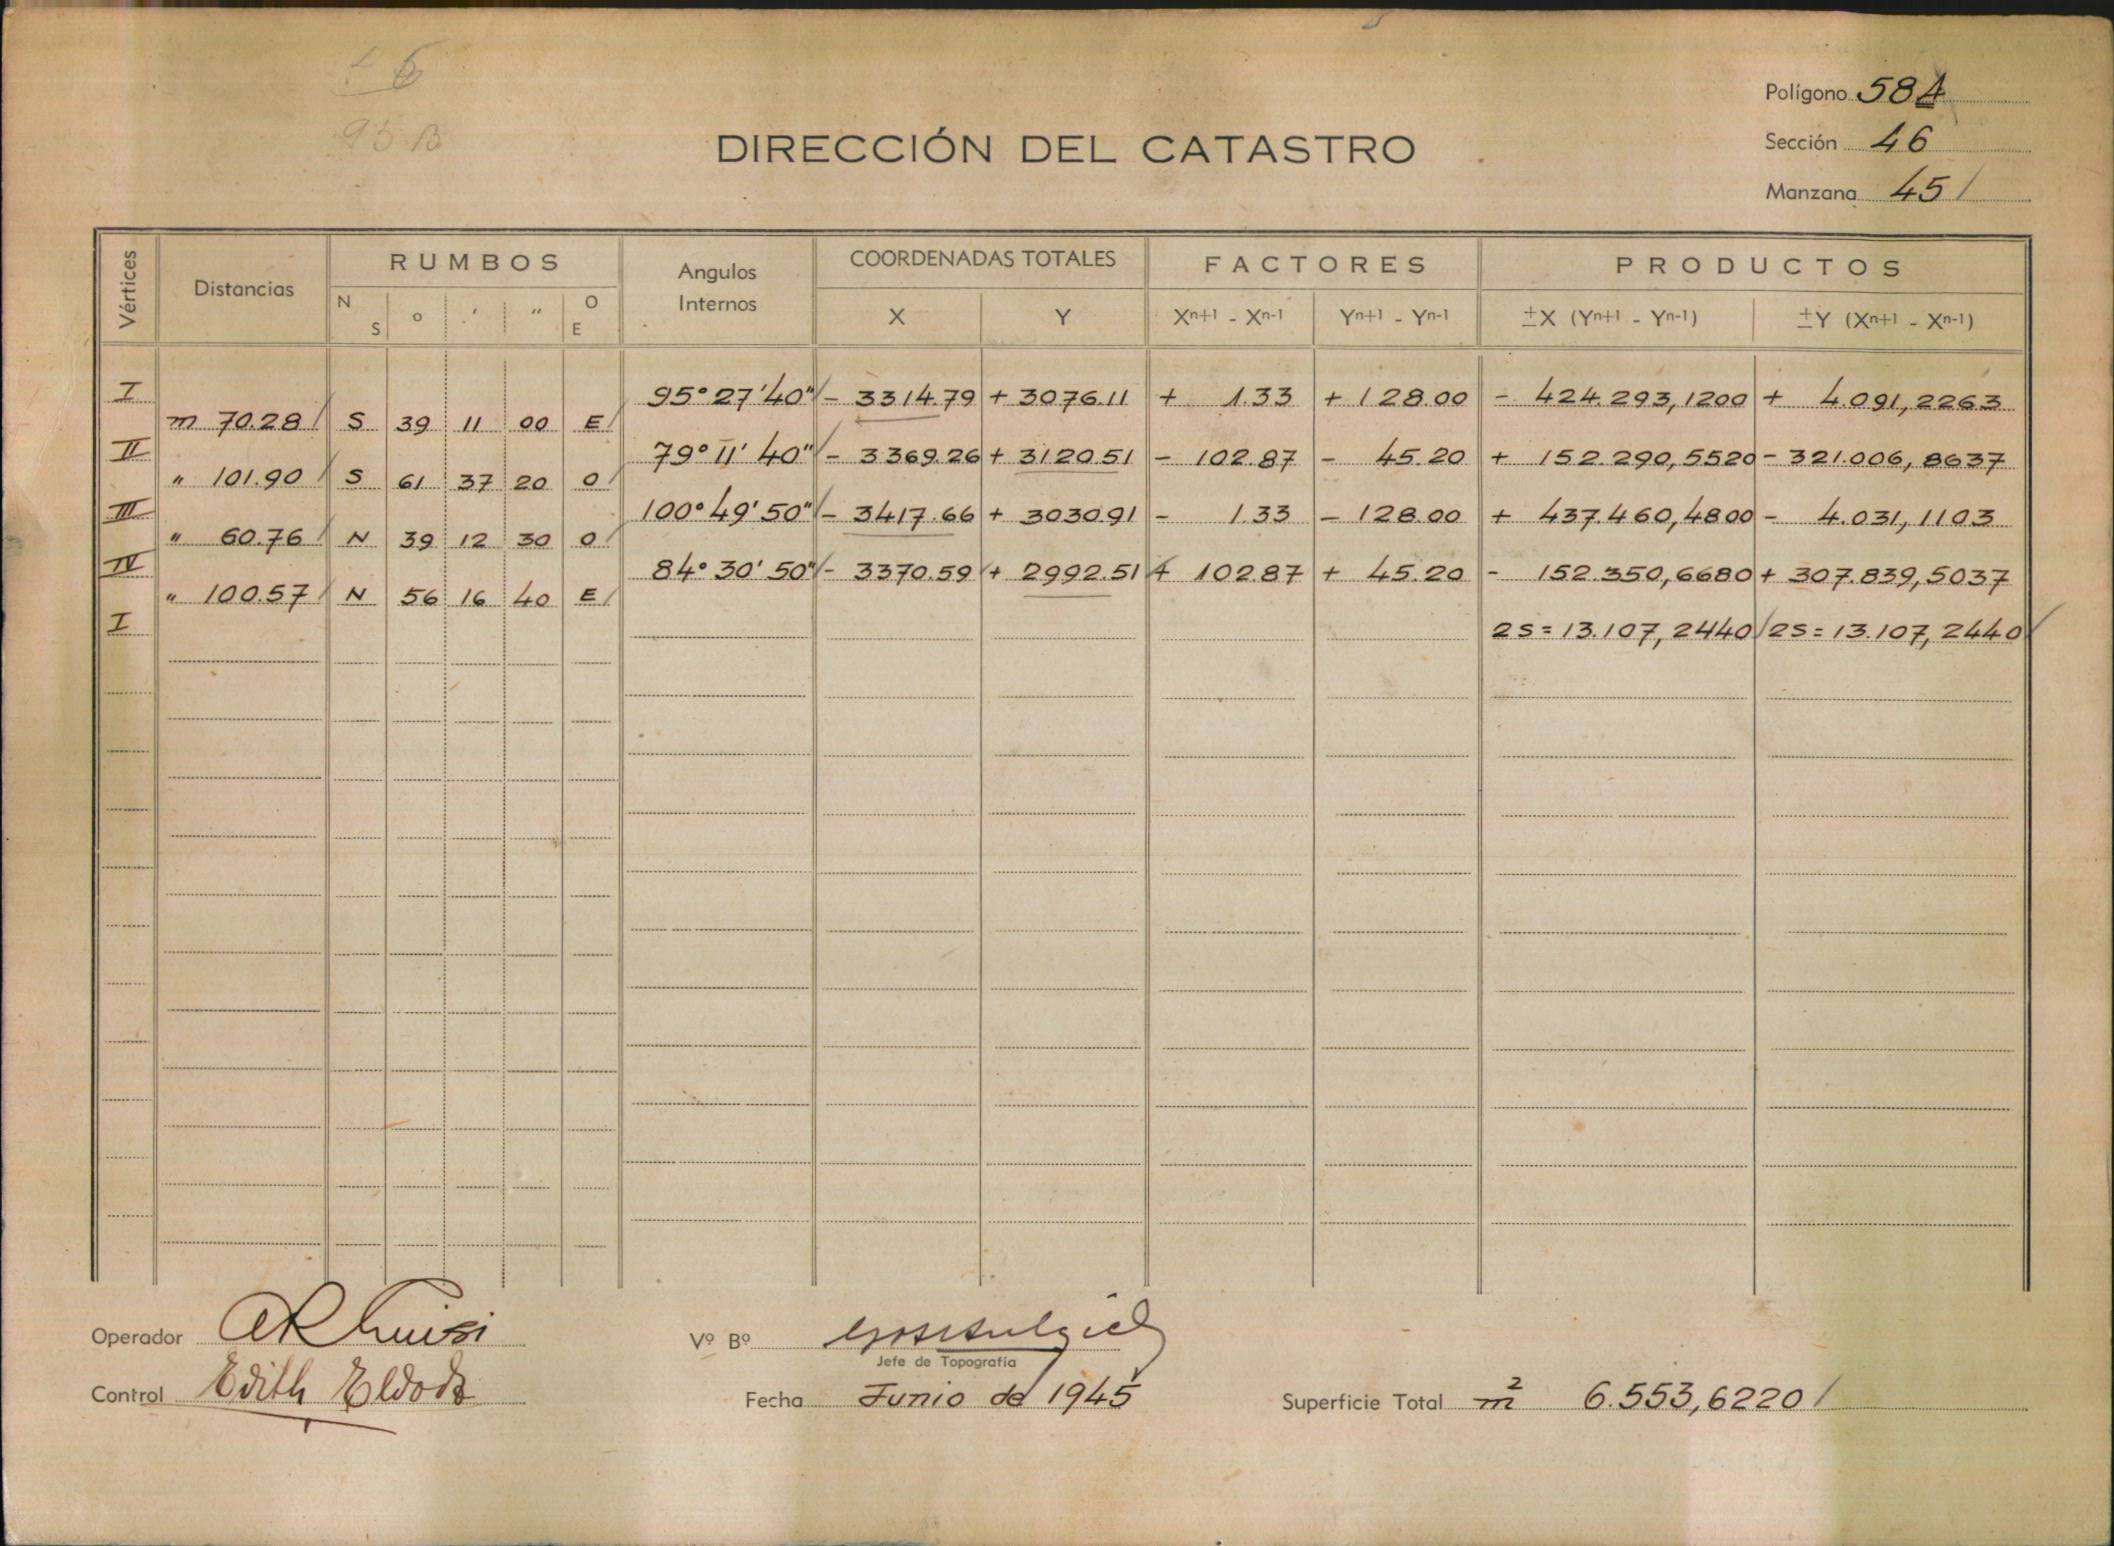 6
95 B
DIRECCIÓN DEL CATASTRO
Polígono 58A
Sección 46
Manzana 45
Vértices
Distancias
RUMBOS
N S ° ' " O E
Angulos Internos
COORDENADAS TOTALES
X Y
FACTORES
Xn+1 - Xn-1 Yn+1 - Yn-1
PRODUCTOS
±X (Yn+1 - Yn-1) ±Y (Xn+1 - Xn-1)
I 95° 27' 40" - 3314.79 + 3076.11 + 1.33 + 128.00 - 424.293,1200 + 4.091,2263
m 70.28 S 39 11 00 E
II 79° 11' 40" - 3369.26 + 3120.51 - 102.87 - 45.20 + 152.290,5520 - 321.006,8637
" 101.90 S 61 37 20 O
III 100° 49' 50" - 3417.66 + 3030.91 - 1.33 - 128.00 + 437.460,4800 - 4.031,1103
" 60.76 N 39 12 30 O
IV 84° 30' 50" - 3370.59 + 2992.51 + 102.87 + 45.20 - 152.350,6680 + 307.839,5037
" 100.57 N 56 16 40 E
I 2S = 13.107,2440 2S = 13.107,2440
Operador
Vº Bº
Jefe de Topografía
Control Edith
Fecha Junio de 1945
Superficie Total m² 6.553,6220